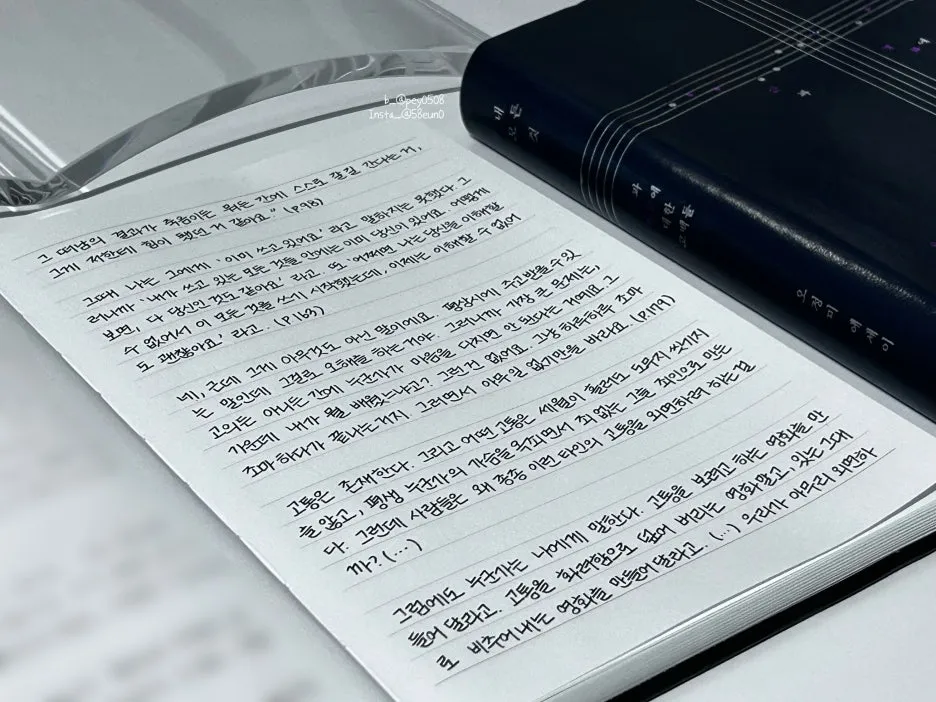 b_@pey0508
Insta_@58eun0
그 떠남의 결과가 죽음이든 뭐든 간에 스스로 갈길 간다는 거,
그게 저한테 힘이 됐던 거 같아요." (p.98)
그때 나는 그에게 '이미 쓰고 있어요' 라고 말하지는 못했다. 그
러니까 '내가 쓰고 있는 모든 것들 안에는 이미 당신이 있어요. 어떻게
보면, 다 당신인 것도 같아요' 라고. 또 '어쩌면 나는 당신을 이해할
수 없어서 이 모든 것을 쓰기 시작했는데, 이제는 이해할 수 없어
도 괜찮아요' 라고. (p.163)
네, 근데 그게 아무것도 아닌 말이에요. 평상시에 주고받을 수 있
는 말인데 그걸로 오해를 하는 거야. 그러니까 가장 큰 문제는,
고의든 아니든 간에 누군가가 마음을 다치면 안 된다는 거예요. 그
가운데 내가 뭘 배웠느냐고? 그런 건 없어요. 그냥 하루하루 조마
조마하다가 끝나는 거지. 그러면서 아무 일 없기만을 바라요. (p.179)
고통은 존재한다. 그리고 어떤 고통은 세월이 흘러도 도무지 씻기지
를 않고, 평생 누군가의 가슴을 옥죄면서 죄 없는 그를 죄인으로 만든
다. 그런데 사람들은 왜 종종 이런 타인의 고통을 외면하려 하는 걸
까? (...)
그럼에도 누군가는 나에게 말한다. 고통을 보려고 하는 영화를 만
들어 달라고. 고통을 화려함으로 덮어 버리는 영화 말고, 있는 그대
로 비추어 내는 영화를 만들어 달라고. (...) 우리가 아무리 외면하
내 모든 것
오정미 에세이